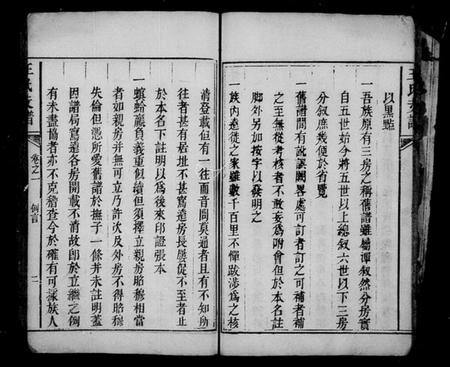 以黑□
一吾族原有三房之稱舊譜雖□譚叙然分房實
自五世始今將五世以上總叙六世以下三房
分叙庶幾便於省覽
一舊譜間有訛誤闕畧處可訂者訂之可補者補
之至無從考核者不敢妄爲附會但於本名註
脚外另加按字以發明之
一族內遠徙之家雖數千百里不憚跋涉爲之核
淸登載但有一往而音問莫通者且有不知所
往者甚有居址不甚寫遠房長屢促不至者止
於本名下註明以爲後來印證張本
一螟蛉亂宗義重似續但須擇立親房昭穆相當
者如親房并無可立乃許次及外房不得昭穆
失倫但憑所愛舊譜於撫子一條并未註明蓋
因譜局寫遠各房開載不前故卽於立繼之例
有未盡協者亦不克稽查今於確有可據族人
王氏支譜
卷之一
例言
二